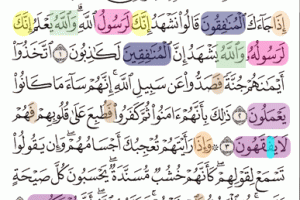 إِذَا جَاءَكَ الْمُنَافِقُونَ قَالُوا نَشْهَدُ إِنَّكَ لَرَسُولُ اللَّهِ وَاللَّهُ يَعْلَمُ إِنَّكَ
لَرَسُولُهُ وَاللَّهُ يَشْهَدُ إِنَّ الْمُنَافِقِينَ لَكَاذِبُونَ ١ اتَّخَذُوا
أَيْمَانَهُمْ جُنَّةً فَصَدُّوا عَن سَبِيلِ اللَّهِ إِنَّهُمْ سَاءَ مَا كَانُوا
يَعْمَلُونَ ٢ ذَلِكَ بِأَنَّهُمْ ءَامَنُوا ثُمَّ كَفَرُوا فَطُبِعَ عَلَى قُلُوبِهِمْ فَهُمْ
لَا يَفْقَهُونَ ٣ وَإِذَا رَأَيْتَهُمْ تُعْجِبُكَ أَجْسَامُهُمْ وَإِن يَقُولُوا
تَسْمَعْ لِقَوْلِهِمْ كَأَنَّهُمْ خُشُبٌ مُّسَنَّدَةٌ يَحْسَبُونَ كُلَّ صَيْحَةٍ